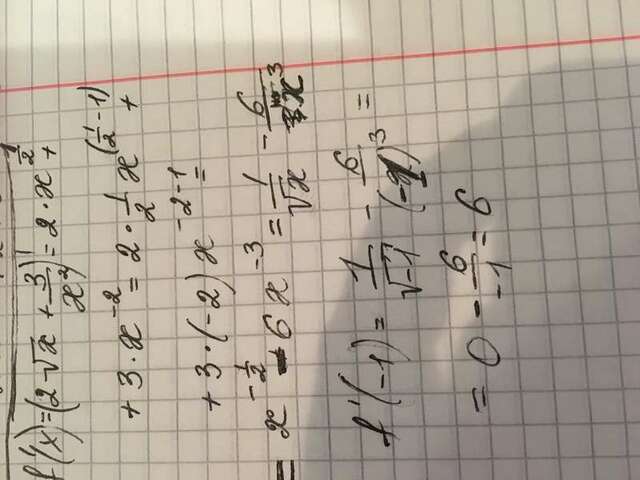 f'(x)=(2-√x + 3/x²)' = 2·x^(1/2) +
+ 3·x^(-2) = 2·1/2 x^(1/2 - 1) +
+ 3·(-2) x^(-2-1) =
= x^(-1/2) - 6x^(-3) = 1/√x - 6/x³
f'(-1) = 1/√-1 - 6/(-1)³ =
= 0 - 6/-1 = 6